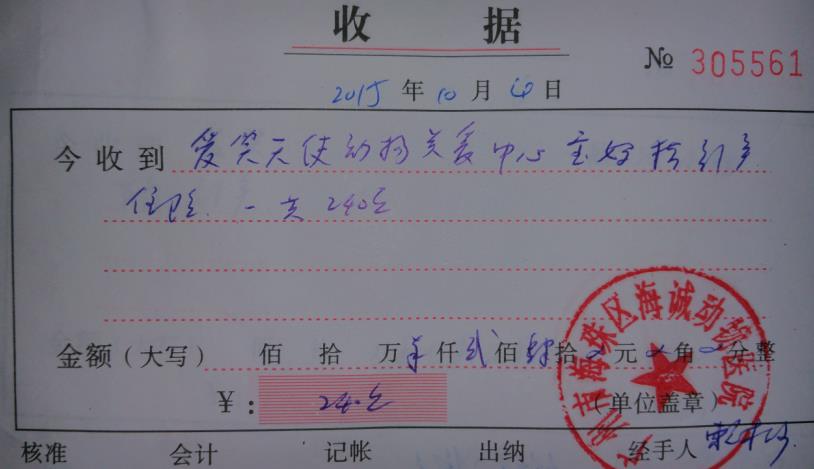 收 据
№ 305561
2015 年 10 月 10 日
今 收 到 爱笑天使动物关爱中心
住院 一共240元
金额（大写） 佰 拾 万 仟 贰 佰 肆 拾 元 角 分整
￥： 240元
（单位盖章）
核准 会计 记帐 出纳 经手人
广州市海珠区海诚动物医院